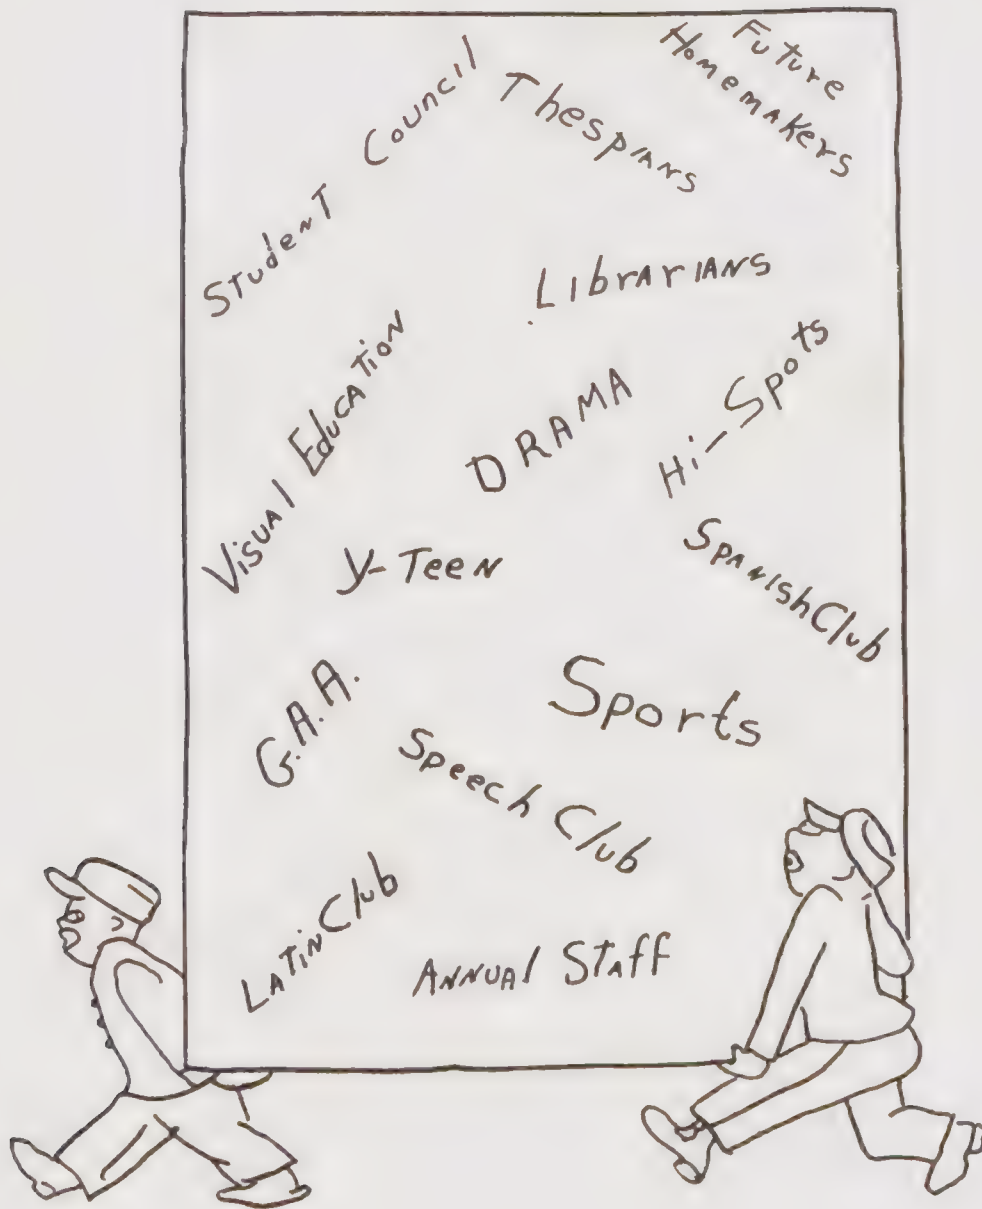 Student Council
Thespians
Future
Homemakers
Librarians
Visual Education
DRAMA
Hi-Spots
Y-Teen
Spanish Club
G.A.A.
Sports
Speech Club
Latin Club
Annual Staff